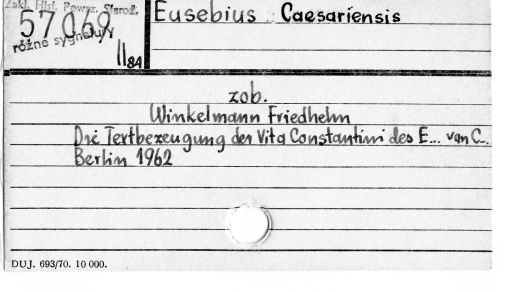 Zakł. Hist. Powsz. Staroż.
57069
różne sygnatury
II 84
Eusebius Caesariensis
zob.
Winkelmann Friedhelm
Die Textbezeugung der Vita Constantini des E... von C..
Berlin 1962
DUJ. 693/70. 10 000.